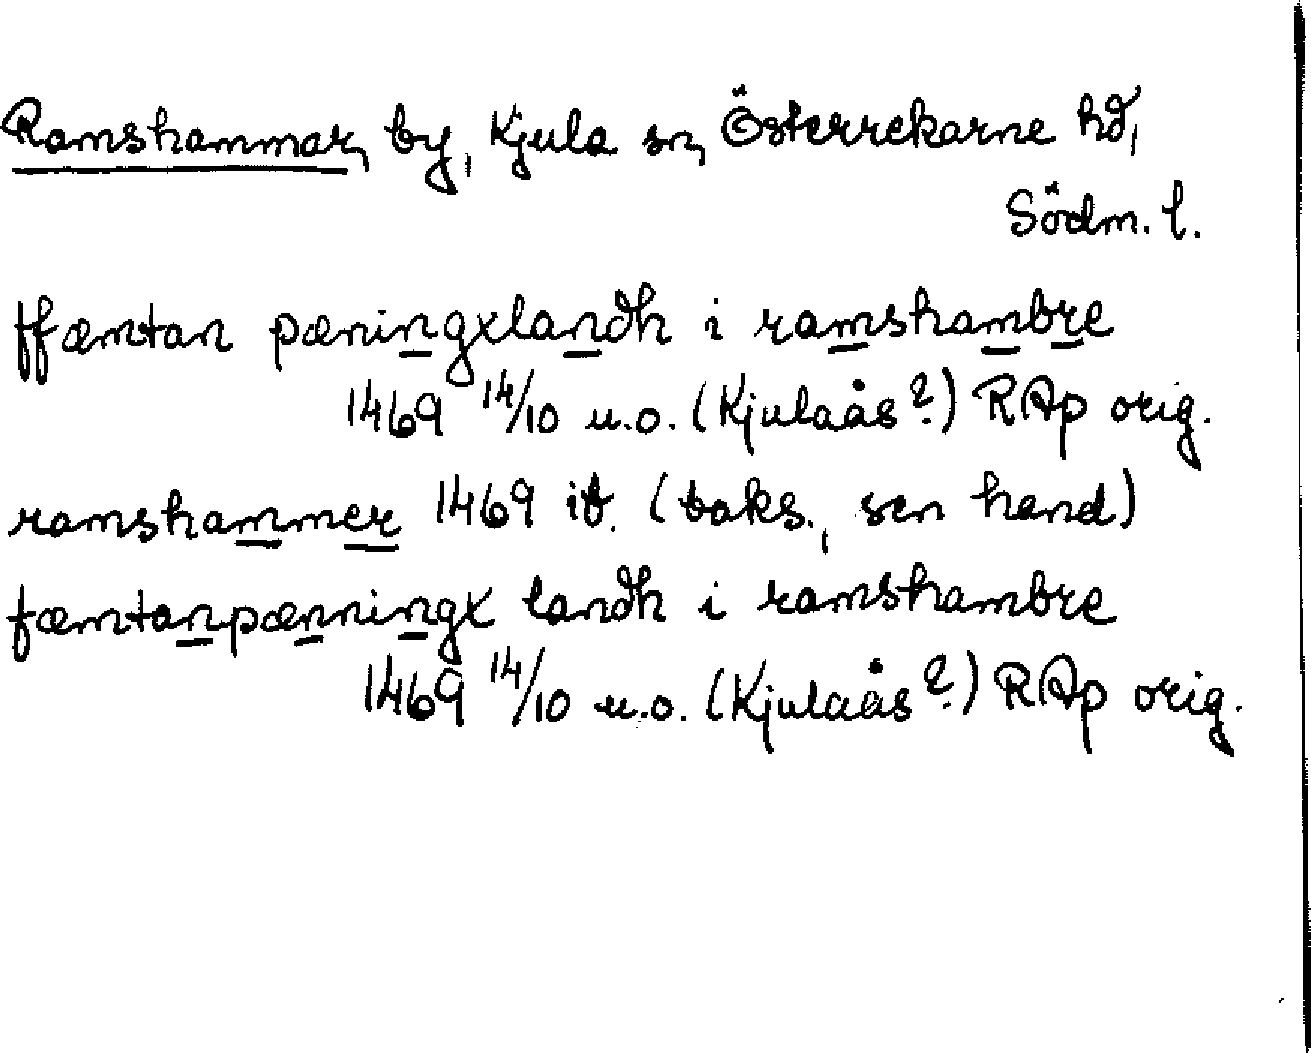 Ramshammar, by, Kjula sn, Österrekarne hd,
Södm. l.
ffæmtan pæningxlandh i ramshambre
1469 14/10 u.o. (Kjulaås?) RAp orig.
ramshammer 1469 ib. (baks., sen hand)
fæmtanpænningx landh i ramshambre
1469 14/10 u.o. (Kjulaås?) RAp orig.